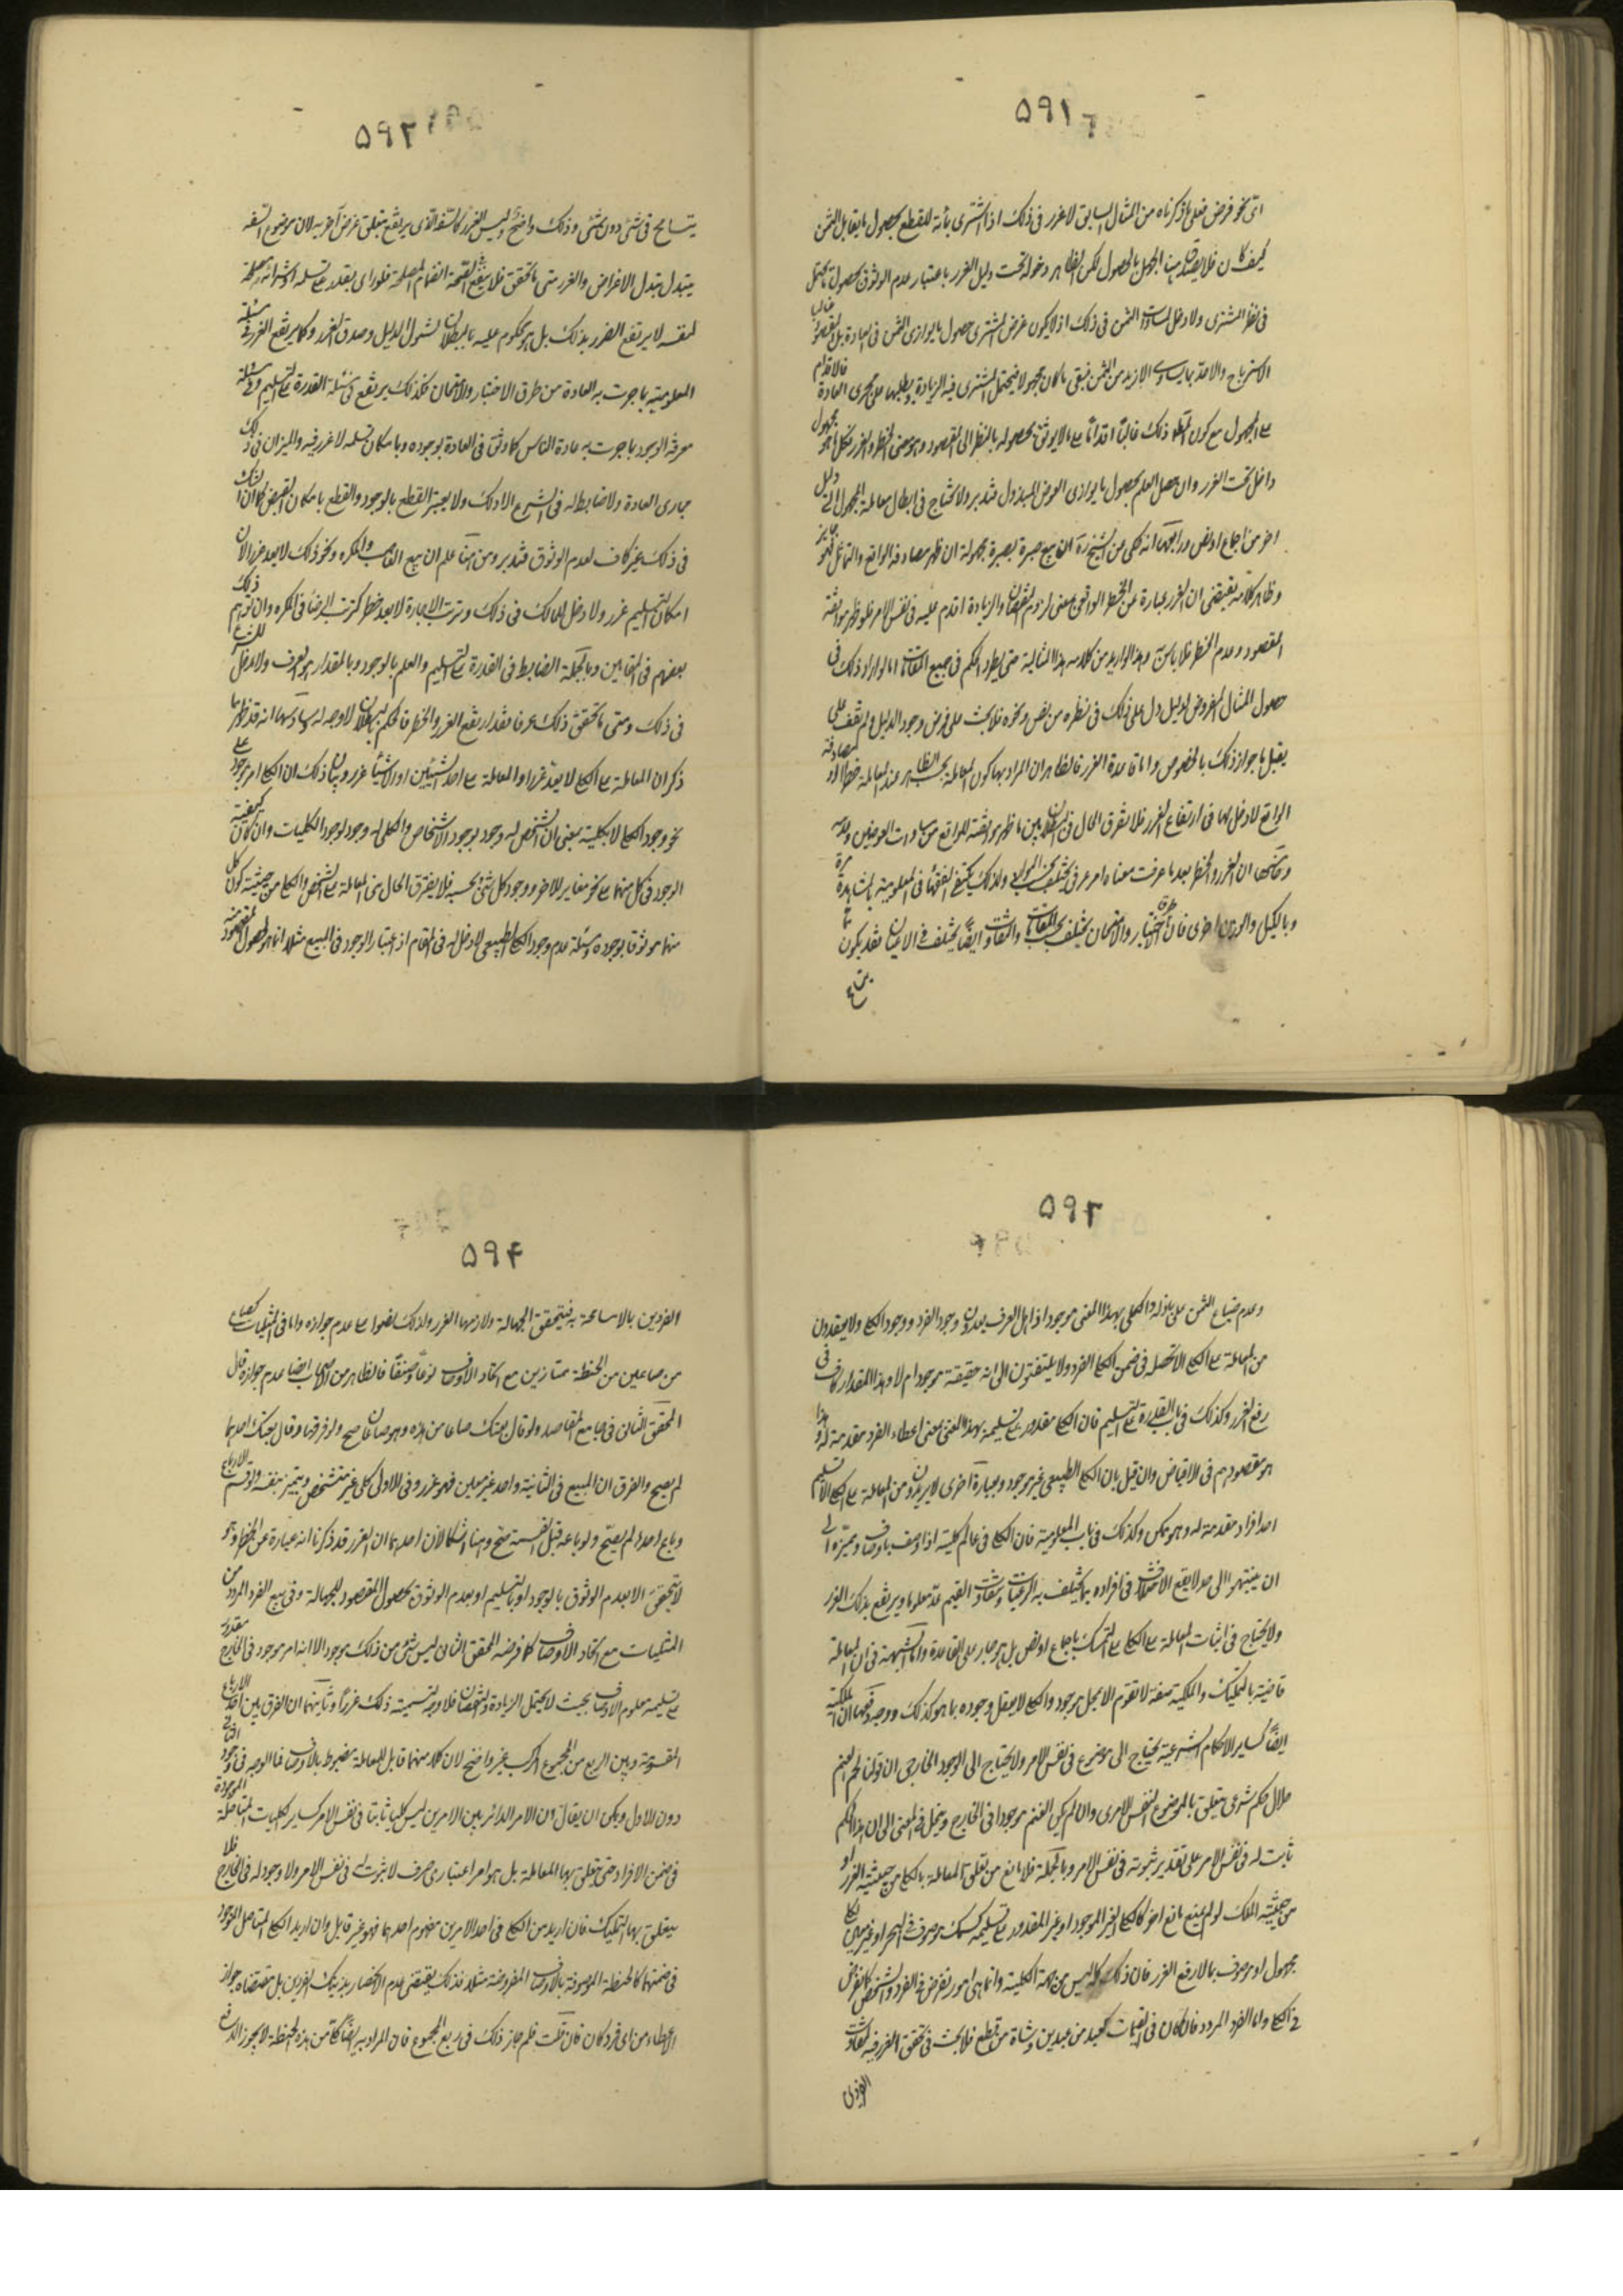 ۵۹۱
اى نحو فرض فعلى ما ذكرناه من المثال السابق لا غرر فى ذلك اذا اشترى بمائة للقطع بحصول ما يقابل الثمن
كيف كان فلا يضر هنا الجهل بالحصول لكن الظاهر دخوله تحت دليل الغرر باعتبار عدم الوثوق بحصول ما يحتمل
فى نظر المشترى ولا دخل لمساوات الثمن فى ذلك اذ لا يكون غرض المشترى حصول ما يوازى الثمن فى العادة بل المقصود غالبا
الاسترباح والاخذ بما يسوى الازيد من الثمن فيبقى ما كان مجهولا فيحتمل المشترى فيه الزيادة ويطلبها على مجرى العادة فالاقدام
على المجهول مع كون ذلك غالبا اقداما على ما لا يوثق بحصوله بالنظر الى المقصود وهو معنى الخطر والغرر فكل مجهول
داخل تحت الغرر وان حصل العلم بحصول ما يوازى العوض المبذول فتدبر ولا نحتاج فى ابطال معاملة المجهول الى دليل
اخر من اجماع او نص ورابعها انه حكى عن الشيخ ره ان بيع صبرة بصبرة مجهولة ان ظهر مصادفة الواقع والتماثل فهو جايز
وظاهر كلامه يقتضى ان الغرر عبارة عن الخطر الواقعى بمعنى لزوم النقصان والزيادة اقدم عليه فى نفس الامر فلو ظهر موافقة
المقصود وعدم الخطر فلا باس وهذا لو اريد من كلامه هذا المثالية حتى يطرد الحكم فى جميع المقامات اما لو اراد ذلك فى
حصول المثال المفروض لدليل دل على ذلك فى نظره من نص ونحوه فلا بحث على فرض وجود الدليل ولم نقف على
يقبل ما جواز ذلك بالخصوص واما قاعدة الغرر فالظاهر ان المراد بها كون المعاملة بحسب الظاهر عند المعاملة خطرا ومصادفة
الواقع لا دخل لها فى ارتفاع الغرر فلا يفرق الحال فى البطلان بين ما ظهر موافقته للواقع من مساوات العوضين وعدمه
وخامسها ان الغرر والخطر بعد ما عرفت معناه امر عرفى يختلف بحسب الموارد ولذلك يكتفى الفقهاء فى المعلومية بالمشاهدة مرة
وبالكيل والوزن اخرى فان طرق الاختبار والامتحان يختلف بحسب المقامات والتفاوت ايضا يختلف فى الاعيان فقد يكون مما
يتسامح
۵۹۲
يتسامح فى شئ دون شئ وذلك واضح وليس الغرر كالسفه الذى يرتفع بتعلق غرض آخر به لان موضوع السفه
يتبدل بتبدل الاغراض والغرر متى ما تحقق فلا ينفع لصحته انضمام المصلحة فلو راى بقدر على تسلمه او شرائه مصلحة
لنفسه لا يرتفع الغرر بذلك بل هو محكوم عليه بالبطلان لشمول الدليل وصدق الغرر وكما يرتفع الغرر فى مسئلة
المعلومية بما جرت به العادة من طرق الاختبار والامتحان فكذلك يرتفع فى مسئلة القدرة على التسليم وفى مسئلة
معرفة الوجود بما جرت به عادة الناس كما وثق فى العادة بوجوده وبامكان تسلمه لا غرر فيه والميزان فى ذلك
مجارى العادة ولا ضابط له فى الشرع الا ذلك ولا يعتبر القطع بالوجود والقطع بامكان القبض كما ان الشك
فى ذلك غير كاف لعدم الوثوق فتدبر ومن هنا علم ان بيع الغاصب والمكره ونحو ذلك لا يعد غررا لان
امكان التسليم غرر ولا دخل للمالك فى ذلك وترتب الاجازة لا يعد خطرا كترتب الرضا فى المكره وان توهم ذلك
بعضهم فى المقامين وبالجملة الضابط فى القدرة على التسليم والعلم بالوجود وبالمقدار هو العرف ولا دخل للشرع
فى ذلك ومتى ما تحقق ذلك عرفا فقد ارتفع الغرر والخطر فالحكم بالبطلان لا وجه له وسادسها انه قد ظهر مما
ذكر ان المعاملة على الكلى لا يعد غررا والمعاملة على احد الشيئين او الاشياء غرر وبيان ذلك ان الكلى امر موجود على
نحو وجود الكلى لا بكليته بمعنى ان الشخص له وجود بوجود الاشخاص والكلى له وجود لوجود الكليات وان كان كيفية
الوجود فى كل منهما على نحو مغاير للاخر ووجود كل شئ بحسبه فلا يفرق الحال فى المعاملة على الشخص والكلى من حيثية كون كل
منهما موثوقا بوجوده ومسئلة عدم وجود الكلى الطبيعى لا دخل له فى المقام اذ اعتبار الوجود فى المبيع مثلا انما هو لحصول المقصود منه
۵۹۳
وعدم ضياع الثمن على باذله والكلى بهذا المعنى موجود اذ اهل العرف يعدون وجود الفرد ووجود الكلى ولا يقصدون
من المعاملة على الكلى الا تحصله فى ضمن الفرد ولا يلتفتون الى انه حقيقة موجود ام لا وهذا المقدار كاف فى
رفع الغرر وكذلك فى باب القدرة على التسليم فان الكلى مقدور على تسليمه بهذا المعنى بمعنى اعطاء الفرد مقدمة له وهذا
هو مقصودهم فى الاقباض وان قيل بان الكلى الطبيعى غير موجود وبعبارة اخرى لا يريدون من المعاملة على الكلى الا تسليم
احد افراد مقدمة له وهو ممكن وكذلك فى باب المعلومية فان الكلى فى عالم كليته اذا وصف باوصاف ومميزة الى
ان ينتهى الى حد لا يقع الاختلاف فى افراده بما يختلف به الرغبات وتتفاوت القيم عد معلوما ويرتفع بذلك الغرر
ولا يحتاج فى اثبات المعاملة على الكلى على التمسك باجماع او نص بل هو جار على القاعدة واما الشبهة فى ان المعاملة
قاضية بالتمليك والملكية صفة لا تقوم الا بمحل موجود والكلى لا يعقل وجوده بما هو كذلك ووجه دفعها ان الملكية
ايضا كساير الاحكام الشرعية يحتاج الى موضوع فى نفس الامر ولا يحتاج الى الوجود الخارجى ان قولنا لحم الغنم
حلال حكم شرعى يتعلق بالموضوع النفس الامرى وان لم يكن الغنم موجودا فى الخارج وينحل فى المعنى الى ان هذا الحكم
ثابت له فى نفس الامر على تقدير ثبوته فى نفس الامر وبالجملة فلا مانع من تعلق المعاملة بالكلى من حيثية الغرر او
من حيثية الملك لو لم يمنع مانع اخر كالكلى الغير الموجود او غير المقدور على تسليمه كسمك موصوف فى البحر او غير معين
مجهول او موصوف بما لا يرفع الغرر فان ذلك كله ليس من جهة الكلية وانما هى امور تعرض فى الفرد والشخص كما تعرض
فى الكلى واما الفرد المردد فان كان فى القيميات كعبد من عبدين وشاة من قطيع فلا بحث فى تحقق الغرر فيه لتفاوت
الفردين
۵۹۴
الفردين بالاسامحة به فيتحقق الجهالة ولازمها الغرر ولذلك نصوا على عدم جوازه واما فى المثليات كصاع
من صاعين من الحنطة متمازين مع اتحاد الاوصاف نوعا وصنفا فالظاهر من الاصحاب ايضا عدم جوازه قال
المحقق الثانى فى جامع المقاصد ولو قال بعتك صاعا من هذه وهو صاعان صح ولو فرقها وقال بعتك احدهما
لم يصح والفرق ان المبيع فى الثانية واحد غير معين فهو غرر وفى الاولى كلى غير متشخص ويتميز بنفسه ولو قسم الارباع
وباع احدها لم يصح ولو باعه قبل القسمة صح وهنا اشكالان احدهما ان الغرر قد ذكرنا انه عبارة عن الخطر وهو
لا يتحقق الا بعدم الوثوق بالوجود او بالتسليم او بعدم الوثوق بحصول المقصود للجهالة وفى بيع الفرد المردد من
المثليات مع اتحاد الاوصاف كما فرضه المحقق الثانى ليس شئ من ذلك بموجود الا انه امر موجود فى الخارج مقدور
على تسليمه معلوم الاوصاف بحيث لا يحتمل الزيادة والنقصان فلا وجه لتسمية ذلك غررا وثانيهما ان الفرق بين احد الارباع
المقسومة وبين الربع من المجموع المركب غير واضح لان كلا منهما قابل للمعاملة مضبوط بالاوصاف فما الوجه فى جواز الثانى
دون الاول ويمكن ان يقال ان الامر الدائر بين الامرين ليس كليا ثابتا فى نفس الامر كساير الكليات المتاصلة الموجودة
فى ضمن الافراد حتى يتعلق بها المعاملة بل هو امر اعتبارى صرف لا ثبوت له فى نفس الامر ولا وجود له فى الخارج فلا
يتعلق بها التمليك فان اريد من الكلى فى احد الامرين مفهوم احدهما فهو غير قابل وان اريد الكلى المتاصل الموجود
فى ضمنهما كالحنطة الموصوفة بالاوصاف المفروضة مثلا فذلك يقتضى عدم الانحصار بذينك الفردين بل مقتضاه جواز
الاعطاء من اى فرد كان فان قلت فلم جاز ذلك فى ربع المجموع فان المراد به ايضا كلى من هذه الحنطة لا يجوز الدفع